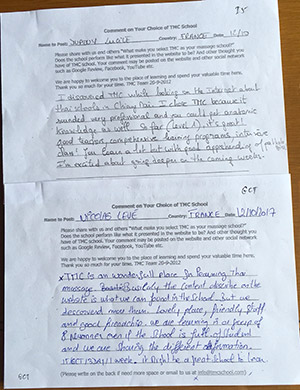 Comment on Your Choice of TMC School
Name to Post: Country: FRANCE Date
Please share with us and others "What make you select TMC as your massage school?"
Does the school perform like what it presented in the website to be? And other thought you
have of TMC school. Your comment may be posted on the website and other social network
such as Google Review, Facebook, YouTube etc.
We are happy to welcome you to the place of learning and spend your valuable time here.
Thank you so much for your time. TMC Team 20-9-2012
I discovered TMC while looking on the internet about
thai schools in Chiang Mai. I chose TMC because it
sounded very professional and you could get anatomic
knowledge as well. So far (level 1) it's great!
Good teachers, comprehensive training programs, intensive
days! You learn a lot but with good apprehending of
I'm excited about going deeper on the coming weeks.
GCT
Comment on Your Choice of TMC School
Name to Post: NICOLAS Country: FRANCE Date 12/10/2017
Please share with us and others "What make you select TMC as your massage school?"
Does the school perform like what it presented in the website to be? And other thought you
have of TMC school. Your comment may be posted on the website and other social network
such as Google Review, Facebook, YouTube etc.
We are happy to welcome you to the place of learning and spend your valuable time here.
Thank you so much for your time. TMC Team 20-9-2012
TMC is an wonderfull place for learning Thai
massage. the content describe on the
website is what we can found in the School. But we
discovered more then. Lovely place, friendly staff
and good. we are learning in a group of
8 women even if the School is full of student
and we are sharing the different information.
1 week. it might be a great School to learn
GCT
(Please write on the back if need more space or email to us at info@tmcschool.com)